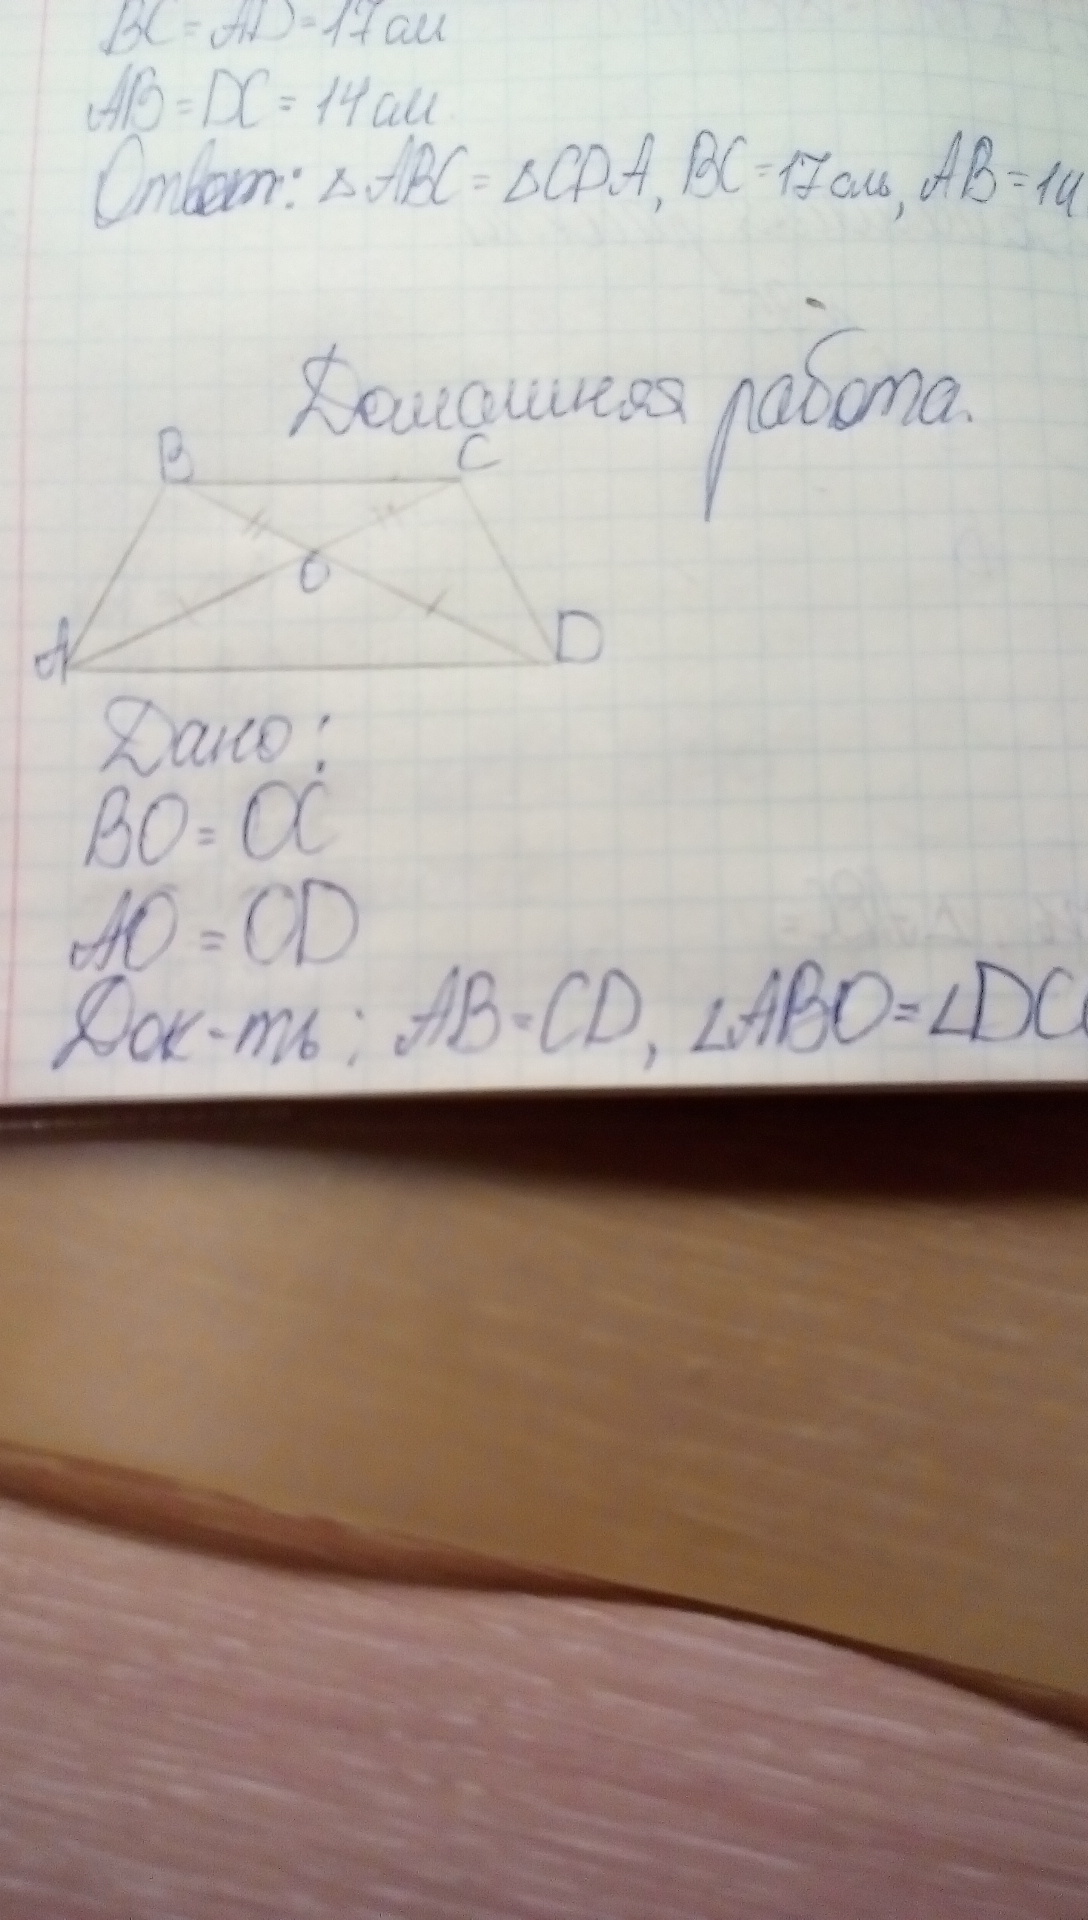 BC = AD = 17 см
AB = DC = 14 см
Ответ: △ABC = △CDA, BC = 17 см, AB = 14
Домашняя работа.
B C
O
A D
Дано:
BO = OC
AO = OD
Док-ть: AB = CD, ∠ABO = ∠DC